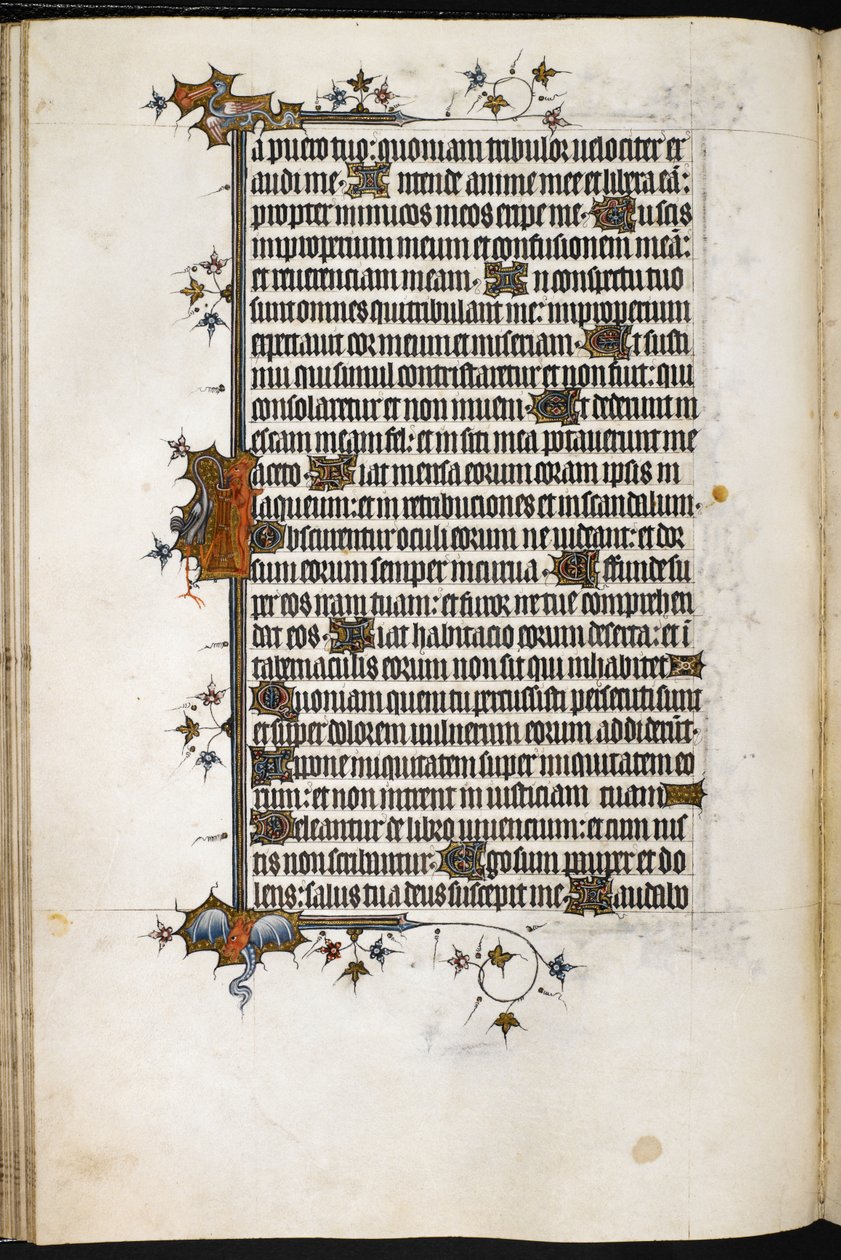 a puero tuo: quoniam tribulor uelociter ex
audi me. Intende anime mee et libera eā:
propter inimicos meos eripe me. Tu scis
improperium meum et confusionem meā:
et reuerenciam meam. In conspectu tuo
sunt omnes qui tribulant me: improperium
expectauit cor meum et miseriam. Et susti
nui qui simul contristaretur et non fuit: qui
consolaretur et non inueni. Et dederunt in
escam meam fel: et in siti mea potauerunt me
aceto. Fiat mensa eorum coram ipsis in
laqueum: et in retribuciones et in scandalum.
Obscurentur oculi eorum ne uideant: et dor
sum eorum semper incurua. Effunde su
per eos iram tuam: et furor ire tue comprehen
dat eos. Fiat habitacio eorum deserta: et ī
tabernaculis eorum non sit qui inhabitet
Quoniam quem tu percussisti persecuti sunt
et super dolorem uulnerum eorum addiderūt.
Appone iniquitatem super iniquitatem eo
rum: et non intrent in iusticiam tuam
Deleantur de libro uiuencium: et cum ius
tis non scribantur. Ego sum pauper et do
lens: salus tua deus suscepit me. Laudabo